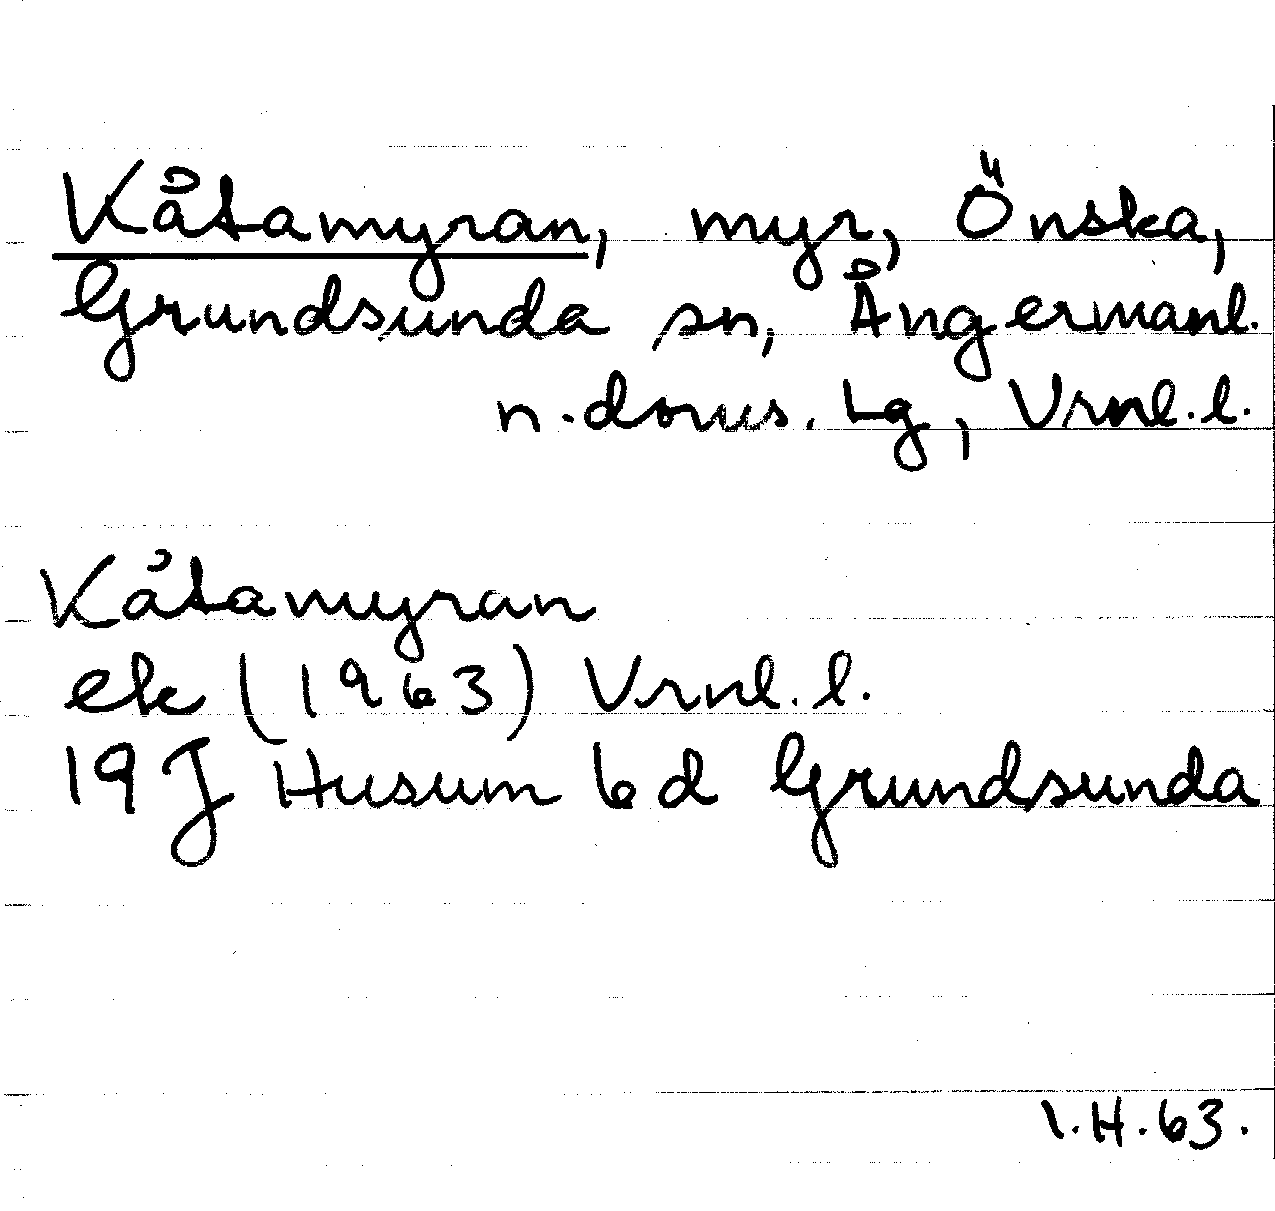 Kåtamyran, myr, Önska,
Grundsunda sn, Ångermanl.
n. doms. Lg, Vrnl. l.
Kåtamyran
ek (1963) Vrnl. l.
19 J Husum 6 d Grundsunda
I.H.63.